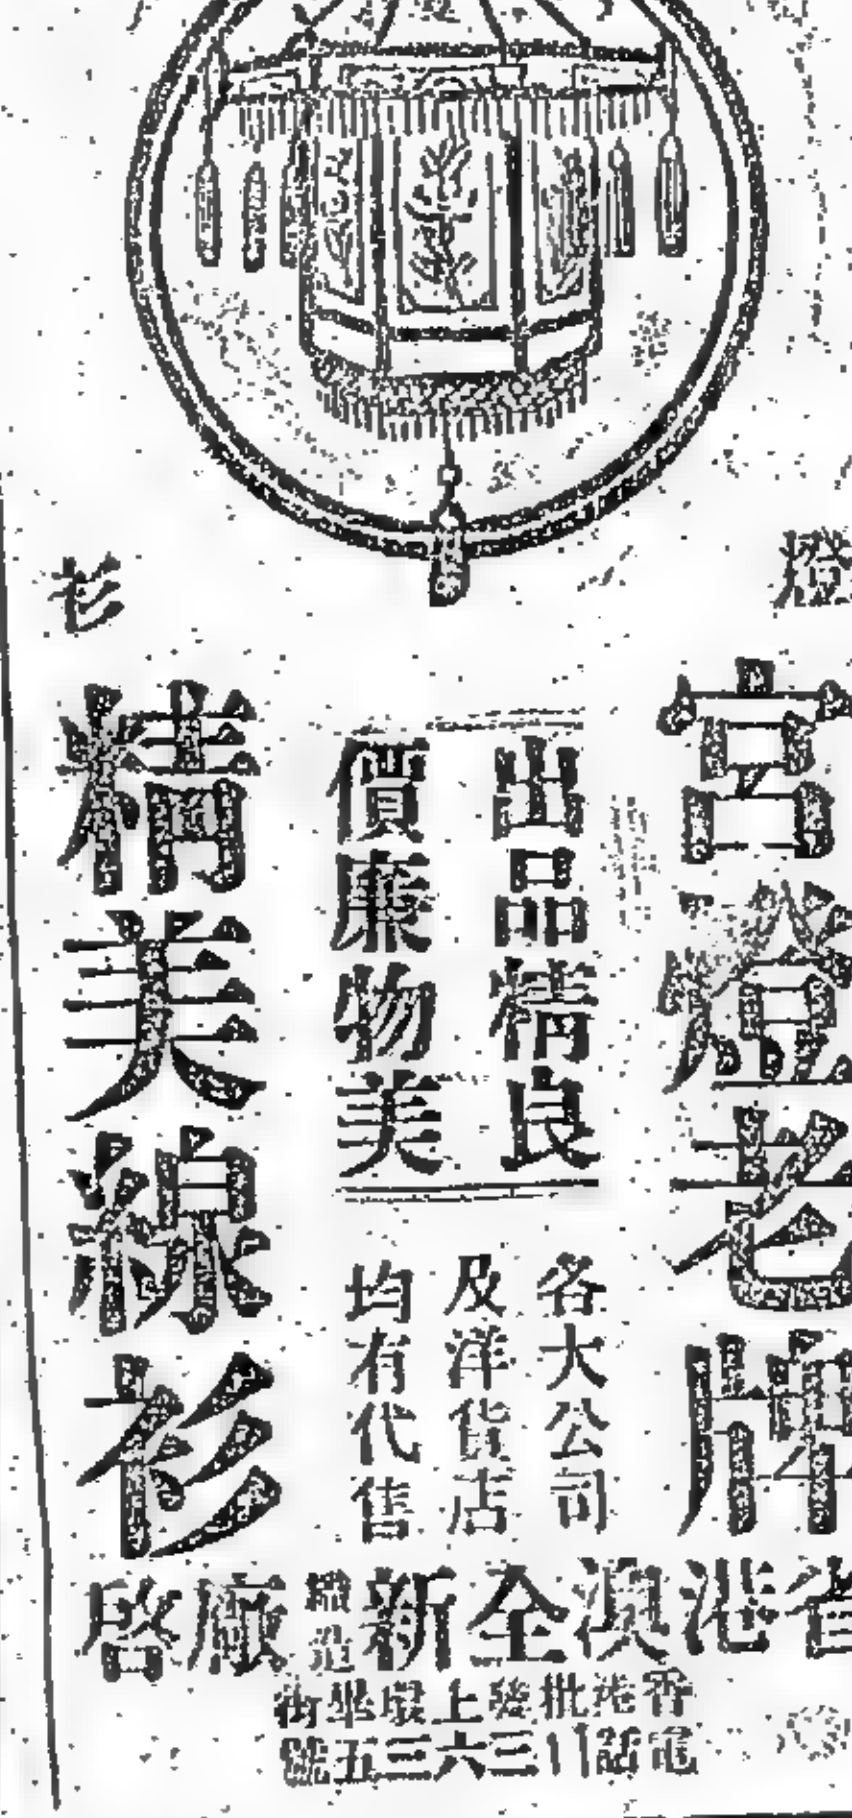 燈
衫
宮燈老牌
出品精良
價廉物美
各大公司
及洋貨店
均有代售
精美線衫
省港澳全新織造廠啓
香港批發上環畢街
電話
三六三五號